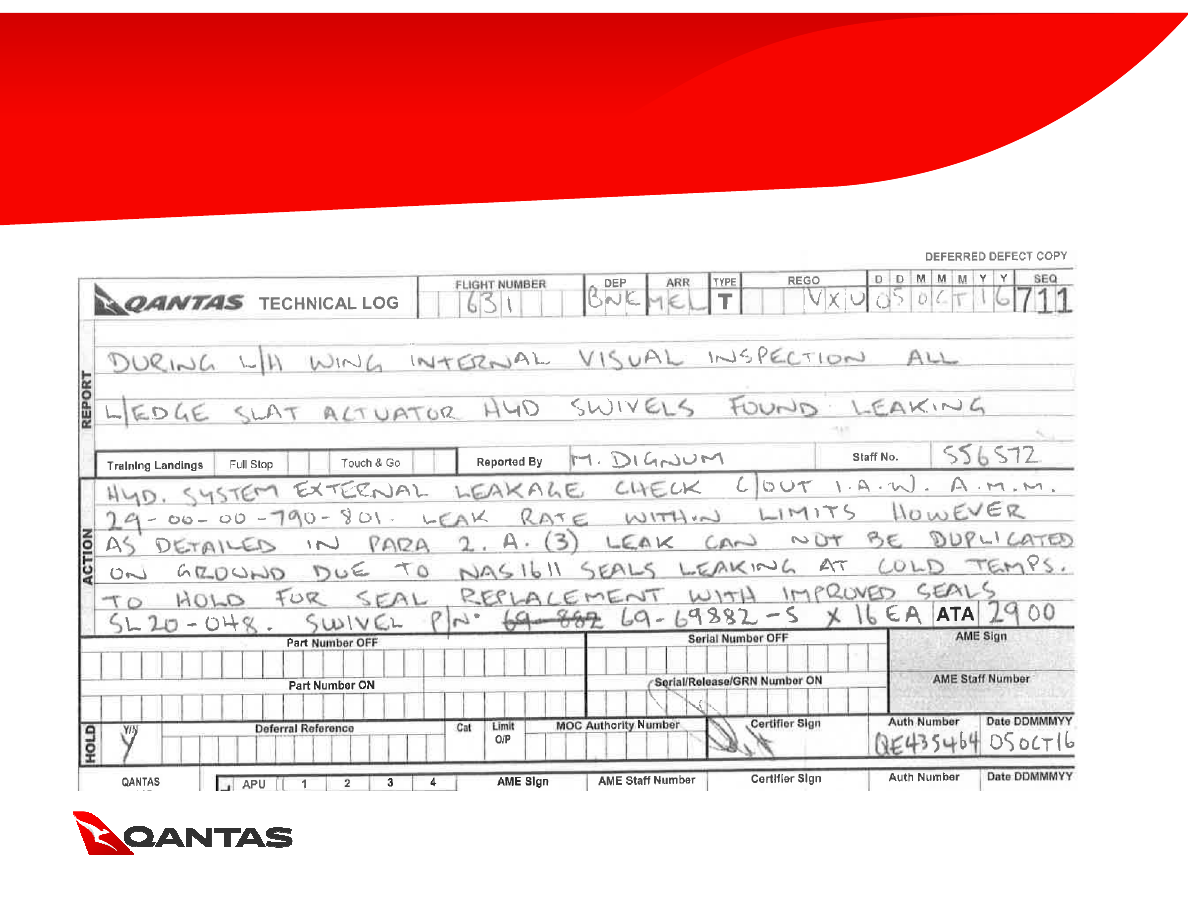 DEFERRED DEFECT COPY
QANTAS TECHNICAL LOG
FLIGHT NUMBER DEP ARR TYPE REGO D D M M M Y Y SEQ
631 BNE MEL T VXU 05 OCT 16 711
REPORT
DURING L/H WING INTERNAL VISUAL INSPECTION ALL
L/EDGE SLAT ACTUATOR HYD SWIVELS FOUND LEAKING
Training Landings Full Stop Touch & Go Reported By M. DIGNUM Staff No. 556572
ACTION
HYD. SYSTEM EXTERNAL LEAKAGE CHECK C/OUT I.A.W. A.M.M.
29-00-00-790-801. LEAK RATE WITHIN LIMITS HOWEVER
AS DETAILED IN PARA 2.A.(3) LEAK CAN NOT BE DUPLICATED
ON GROUND DUE TO NAS1611 SEALS LEAKING AT COLD TEMPS.
TO HOLD FOR SEAL REPLACEMENT WITH IMPROVED SEALS
SL20-048. SWIVEL P/No 69-882 69-69882-5 X 16 EA ATA 2900
Part Number OFF Serial Number OFF AME Sign
Part Number ON Serial/Release/GRN Number ON AME Staff Number
HOLD Y/N Deferral Reference Cat Limit O/P MOC Authority Number Certifier Sign Auth Number Date DDMMMYY
Y QE435464 05OCT16
QANTAS APU 1 2 3 4 AME Sign AME Staff Number Certifier Sign Auth Number Date DDMMMYY
QANTAS